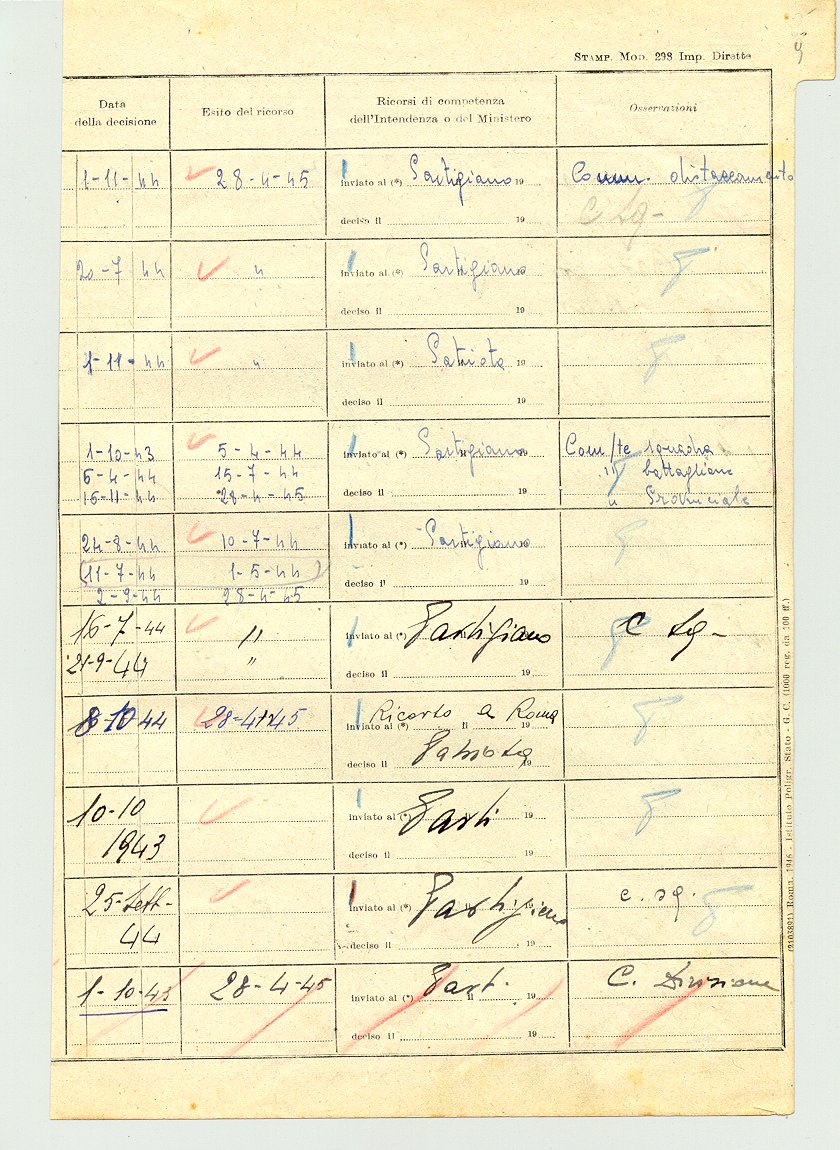 9
STAMP. MOD. 298 Imp. Dirette
Data della decisione
Esito del ricorso
Ricorsi di competenza dell'Intendenza o del Ministero
Osservazioni
1-11-44
28-4-45
inviato al (*) Partigiano 19
Comm. distaccamento
deciso il 19
C Sq-
20-7 44
"
inviato al (*) Partigiano 19
deciso il 19
1-11-44
"
inviato al (*) Patriota 19
deciso il 19
1-10-43
5-4-44
inviato al (*) Partigiano 19
Com/te squadra
6-4-44
15-7-44
" battaglione
16-11-44
28-4-45
deciso il 19
" Provinciale
24-8-44
10-7-44
inviato al (*) Partigiano
(11-7-44
1-5-44)
deciso il 19
2-9-44
28-4-45
16-7-44
"
inviato al (*) Partigiano
C Sq-
21-9-44
"
deciso il 19
8-10-44
28-4-45
Ricorso a Roma
inviato al (*) il
Patriota
deciso il 19
10-10
inviato al (*) Parti 19
1943
deciso il 19
25-Sett-
inviato al (*) Partigiano 19
c. sq.
44
deciso il 19
1-10-43
28-4-45
inviato al (*) Part. il 19
C. Divisione
deciso il 19
(2103891) Roma, 1946 - Istituto Poligr. Stato - G. C. (1000 reg. da 100 ff.)